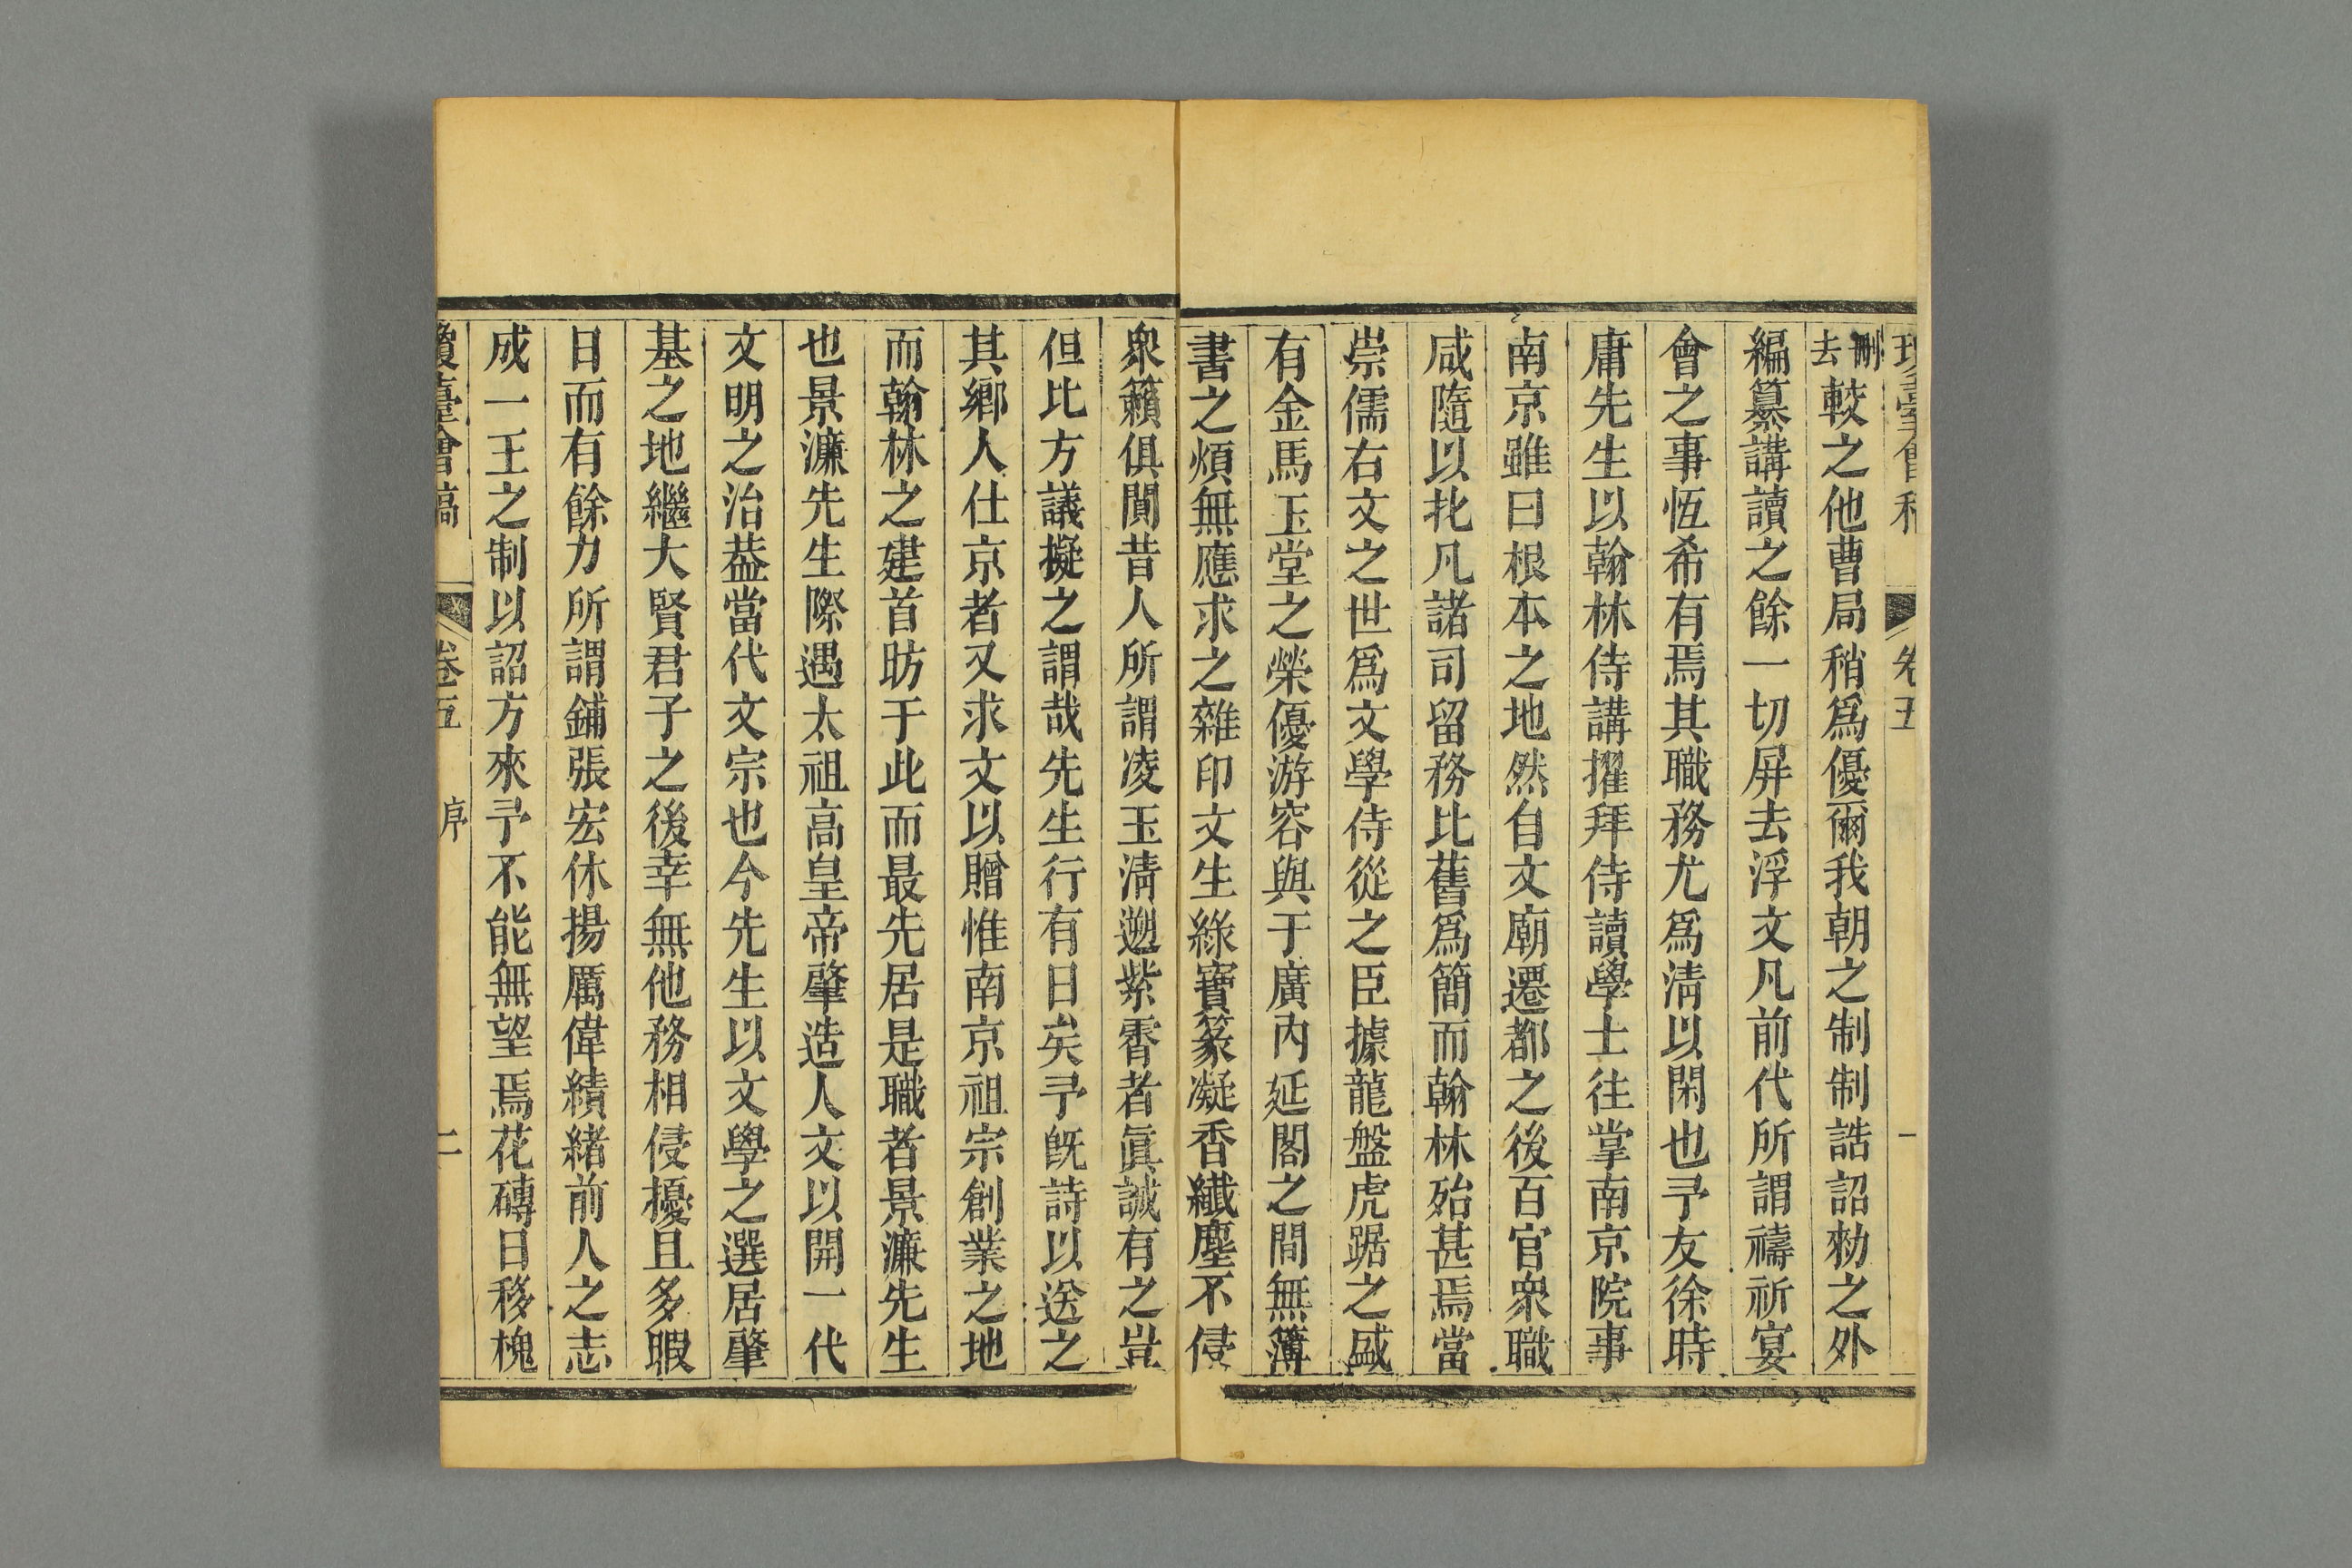 刪去較之他曹局稍爲優爾我朝之制制誥詔勑之外
編纂講讀之餘一切屏去浮文凡前代所謂禱祈宴
會之事恆希有焉其職務尤爲淸以閑也予友徐時
庸先生以翰林侍講擢拜侍讀學士往掌南京院事
南京雖曰根本之地然自文廟遷都之後百官衆職
咸隨以北凡諸司留務比舊爲簡而翰林殆甚焉當
崇儒右文之世爲文學侍從之臣據龍盤虎踞之盛
有金馬玉堂之榮優游容與于廣內延閣之間無簿
書之煩無應求之雜印文生綠寶篆凝香纖塵不侵
衆籟俱闃昔人所謂凌玉淸遡紫霄者眞誠有之豈
但比方議擬之謂哉先生行有日矣予旣詩以送之
其鄕人仕京者又求文以贈惟南京祖宗創業之地
而翰林之建首昉于此而最先居是職者景濂先生
也景濂先生際遇太祖高皇帝肇造人文以開一代
文明之治葢當代文宗也今先生以文學之選居肇
基之地繼大賢君子之後幸無他務相侵擾且多暇
日而有餘力所謂鋪張宏休揚厲偉績緒前人之志
成一王之制以詔方來予不能無望焉花磚日移槐
瓊臺會稿 卷五 序 二